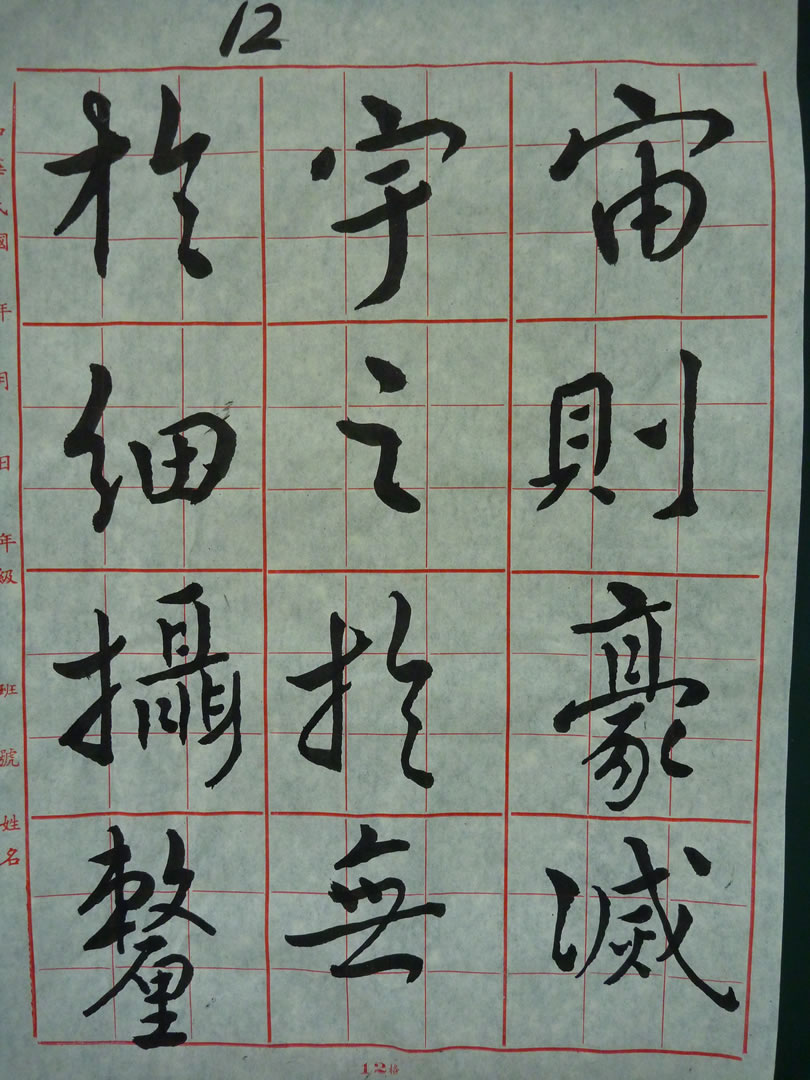 12
於宇宙
細之則
攝於豪
釐無滅
中華民國 年 月 日 年級 班 號 姓名
12格